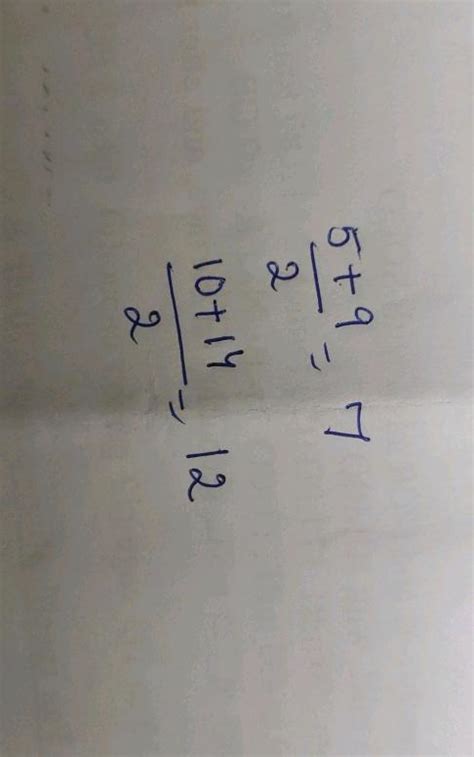 5+9/2 = 7
10+14/2 = 12